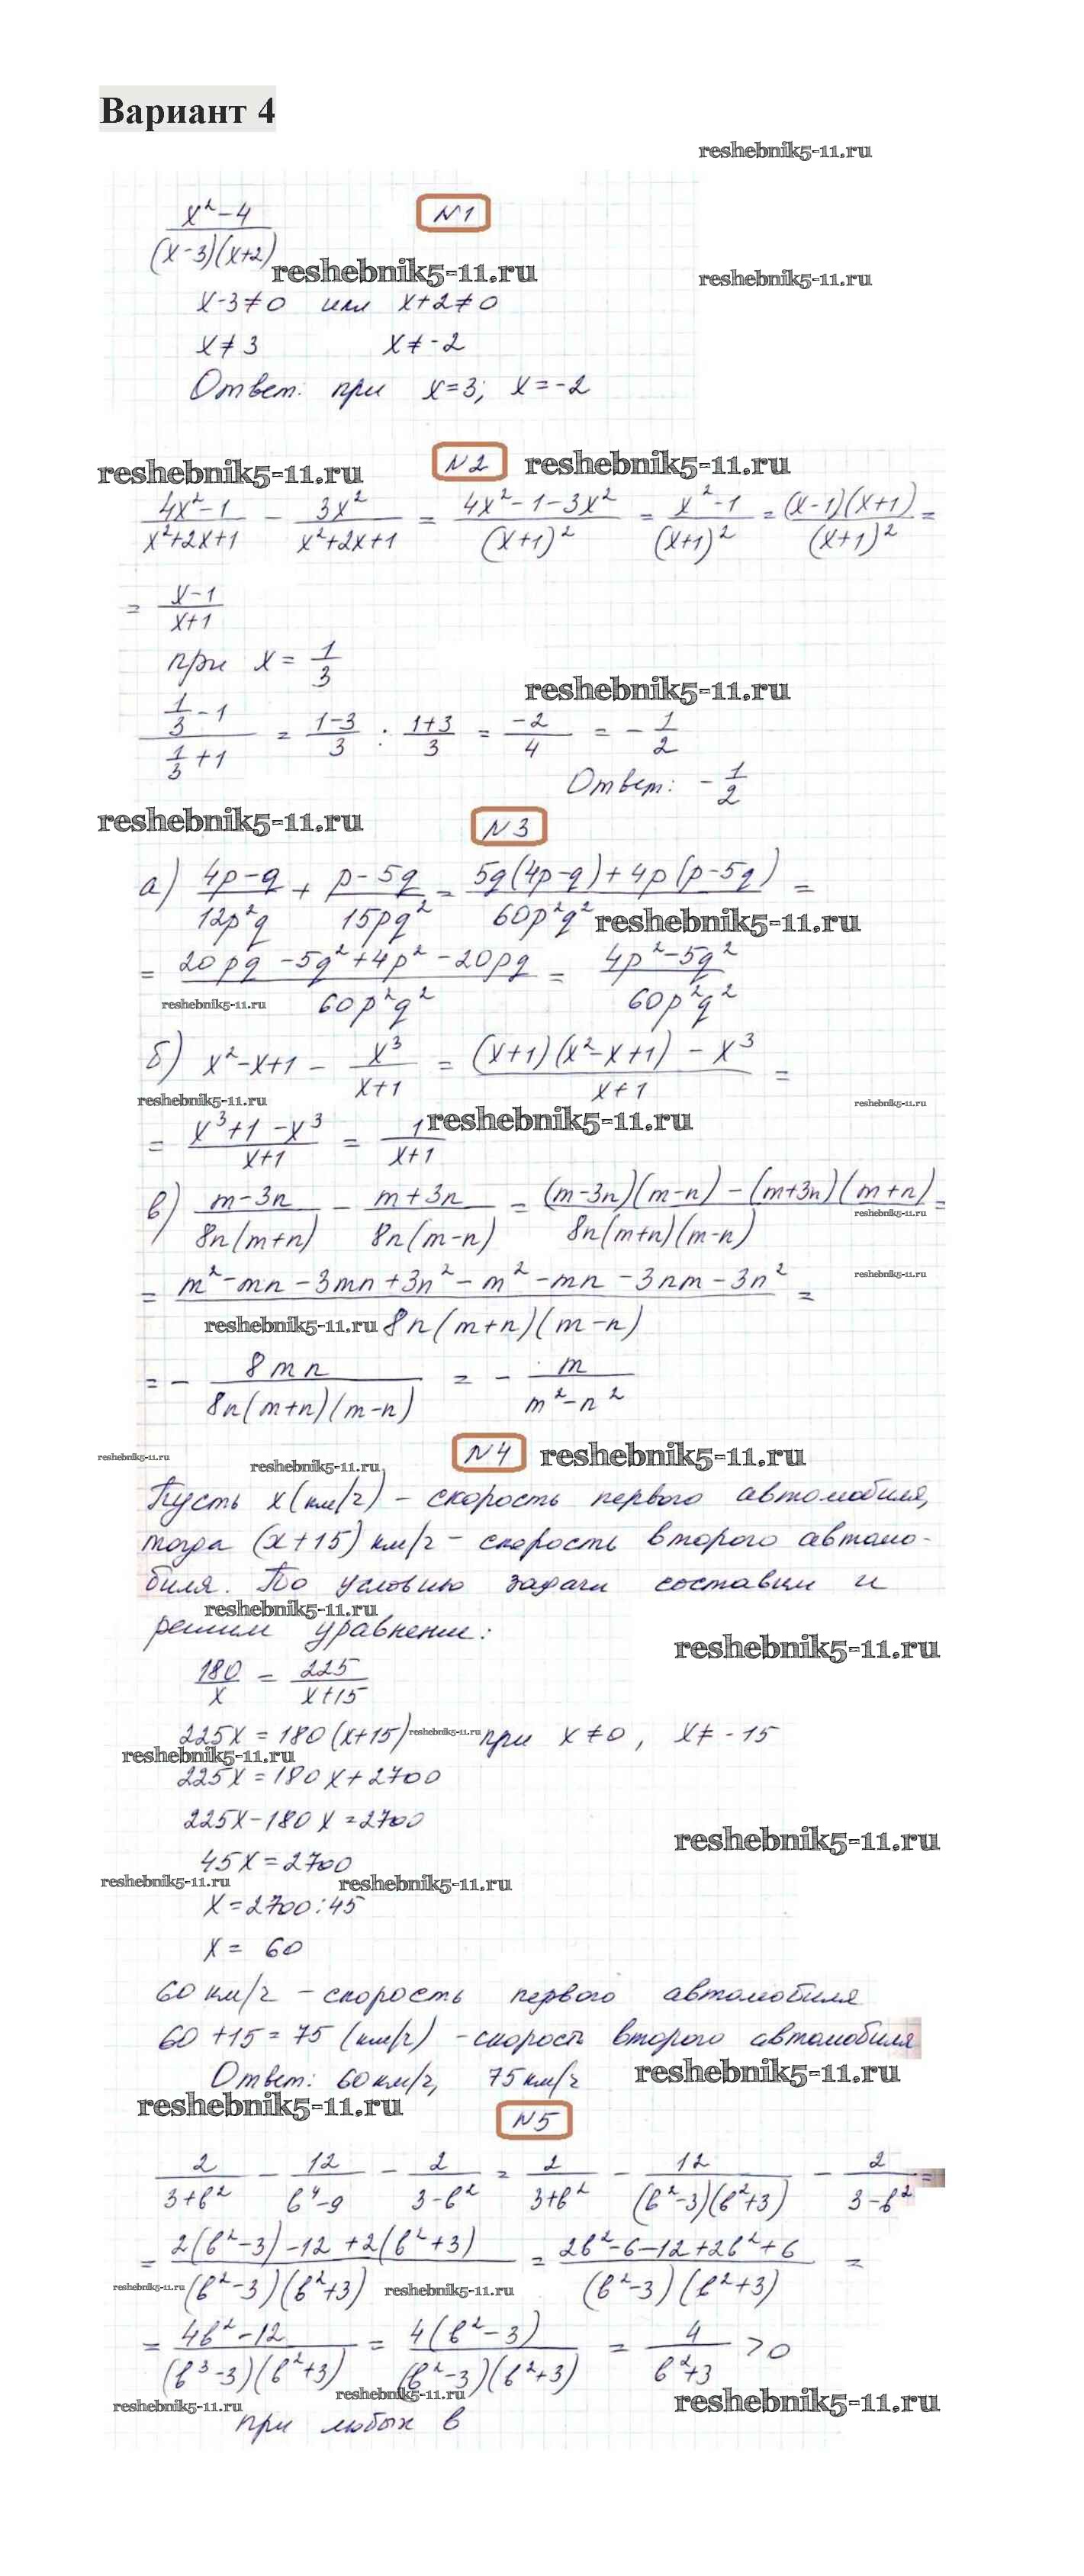 Вариант 4
reshebnik5-11.ru
x²-4 / (x-3)(x+2)
№1
reshebnik5-11.ru
reshebnik5-11.ru
x-3≠0 или x+2≠0
x≠3 x≠-2
Ответ: при x=3; x=-2
reshebnik5-11.ru
№2
reshebnik5-11.ru
(4x²-1)/(x²+2x+1) - 3x²/(x²+2x+1) = (4x²-1-3x²)/(x+1)² = (x²-1)/(x+1)² = (x-1)(x+1)/(x+1)² =
= (x-1)/(x+1)
при x = 1/3
reshebnik5-11.ru
(1/3-1)/(1/3+1) = (1-3)/3 : (1+3)/3 = -2/4 = -1/2
Ответ: -1/2
reshebnik5-11.ru
№3
а) (4p-q)/(12p²q) + (p-5q)/(15pq²) = (5q(4p-q)+4p(p-5q))/(60p²q²) =
reshebnik5-11.ru
= (20pq-5q²+4p²-20pq)/(60p²q²) = (4p²-5q²)/(60p²q²)
reshebnik5-11.ru
б) x²-x+1 - x³/(x+1) = ((x+1)(x²-x+1)-x³)/(x+1) =
reshebnik5-11.ru
reshebnik5-11.ru
= (x³+1-x³)/(x+1) = 1/(x+1)
reshebnik5-11.ru
в) (m-3n)/(8n(m+n)) - (m+3n)/(8n(m-n)) = ((m-3n)(m-n)-(m+3n)(m+n))/(8n(m+n)(m-n)) =
reshebnik5-11.ru
= (m²-mn-3mn+3n²-m²-mn-3nm-3n²)/(8n(m+n)(m-n)) =
reshebnik5-11.ru
reshebnik5-11.ru
= - 8mn/(8n(m+n)(m-n)) = - m/(m²-n²)
№4
reshebnik5-11.ru
reshebnik5-11.ru
reshebnik5-11.ru
Пусть x(км/ч) - скорость первого автомобиля,
тогда (x+15) км/ч - скорость второго автомо-
биля. По условию задачи составим и
reshebnik5-11.ru
решим уравнение:
reshebnik5-11.ru
180/x = 225/(x+15)
225x = 180(x+15) reshebnik5-11.ru при x≠0, x≠-15
reshebnik5-11.ru
225x=180x+2700
225x-180x=2700
reshebnik5-11.ru
45x=2700
reshebnik5-11.ru
reshebnik5-11.ru
x=2700:45
x= 60
60 км/ч - скорость первого автомобиля
60+15=75 (км/ч) - скорость второго автомобиля
Ответ: 60км/ч, 75км/ч
reshebnik5-11.ru
reshebnik5-11.ru
№5
2/(3+b²) - 12/(b⁴-9) - 2/(3-b²) = 2/(3+b²) - 12/((b²-3)(b²+3)) - 2/(3-b²) =
= (2(b²-3)-12+2(b²+3))/((b²-3)(b²+3)) = (2b²-6-12+2b²+6)/((b²-3)(b²+3)) =
reshebnik5-11.ru
reshebnik5-11.ru
= (4b²-12)/((b³-3)(b²+3)) = 4(b²-3)/((b²-3)(b²+3)) = 4/(b²+3) >0
reshebnik5-11.ru
reshebnik5-11.ru
reshebnik5-11.ru
при любых b